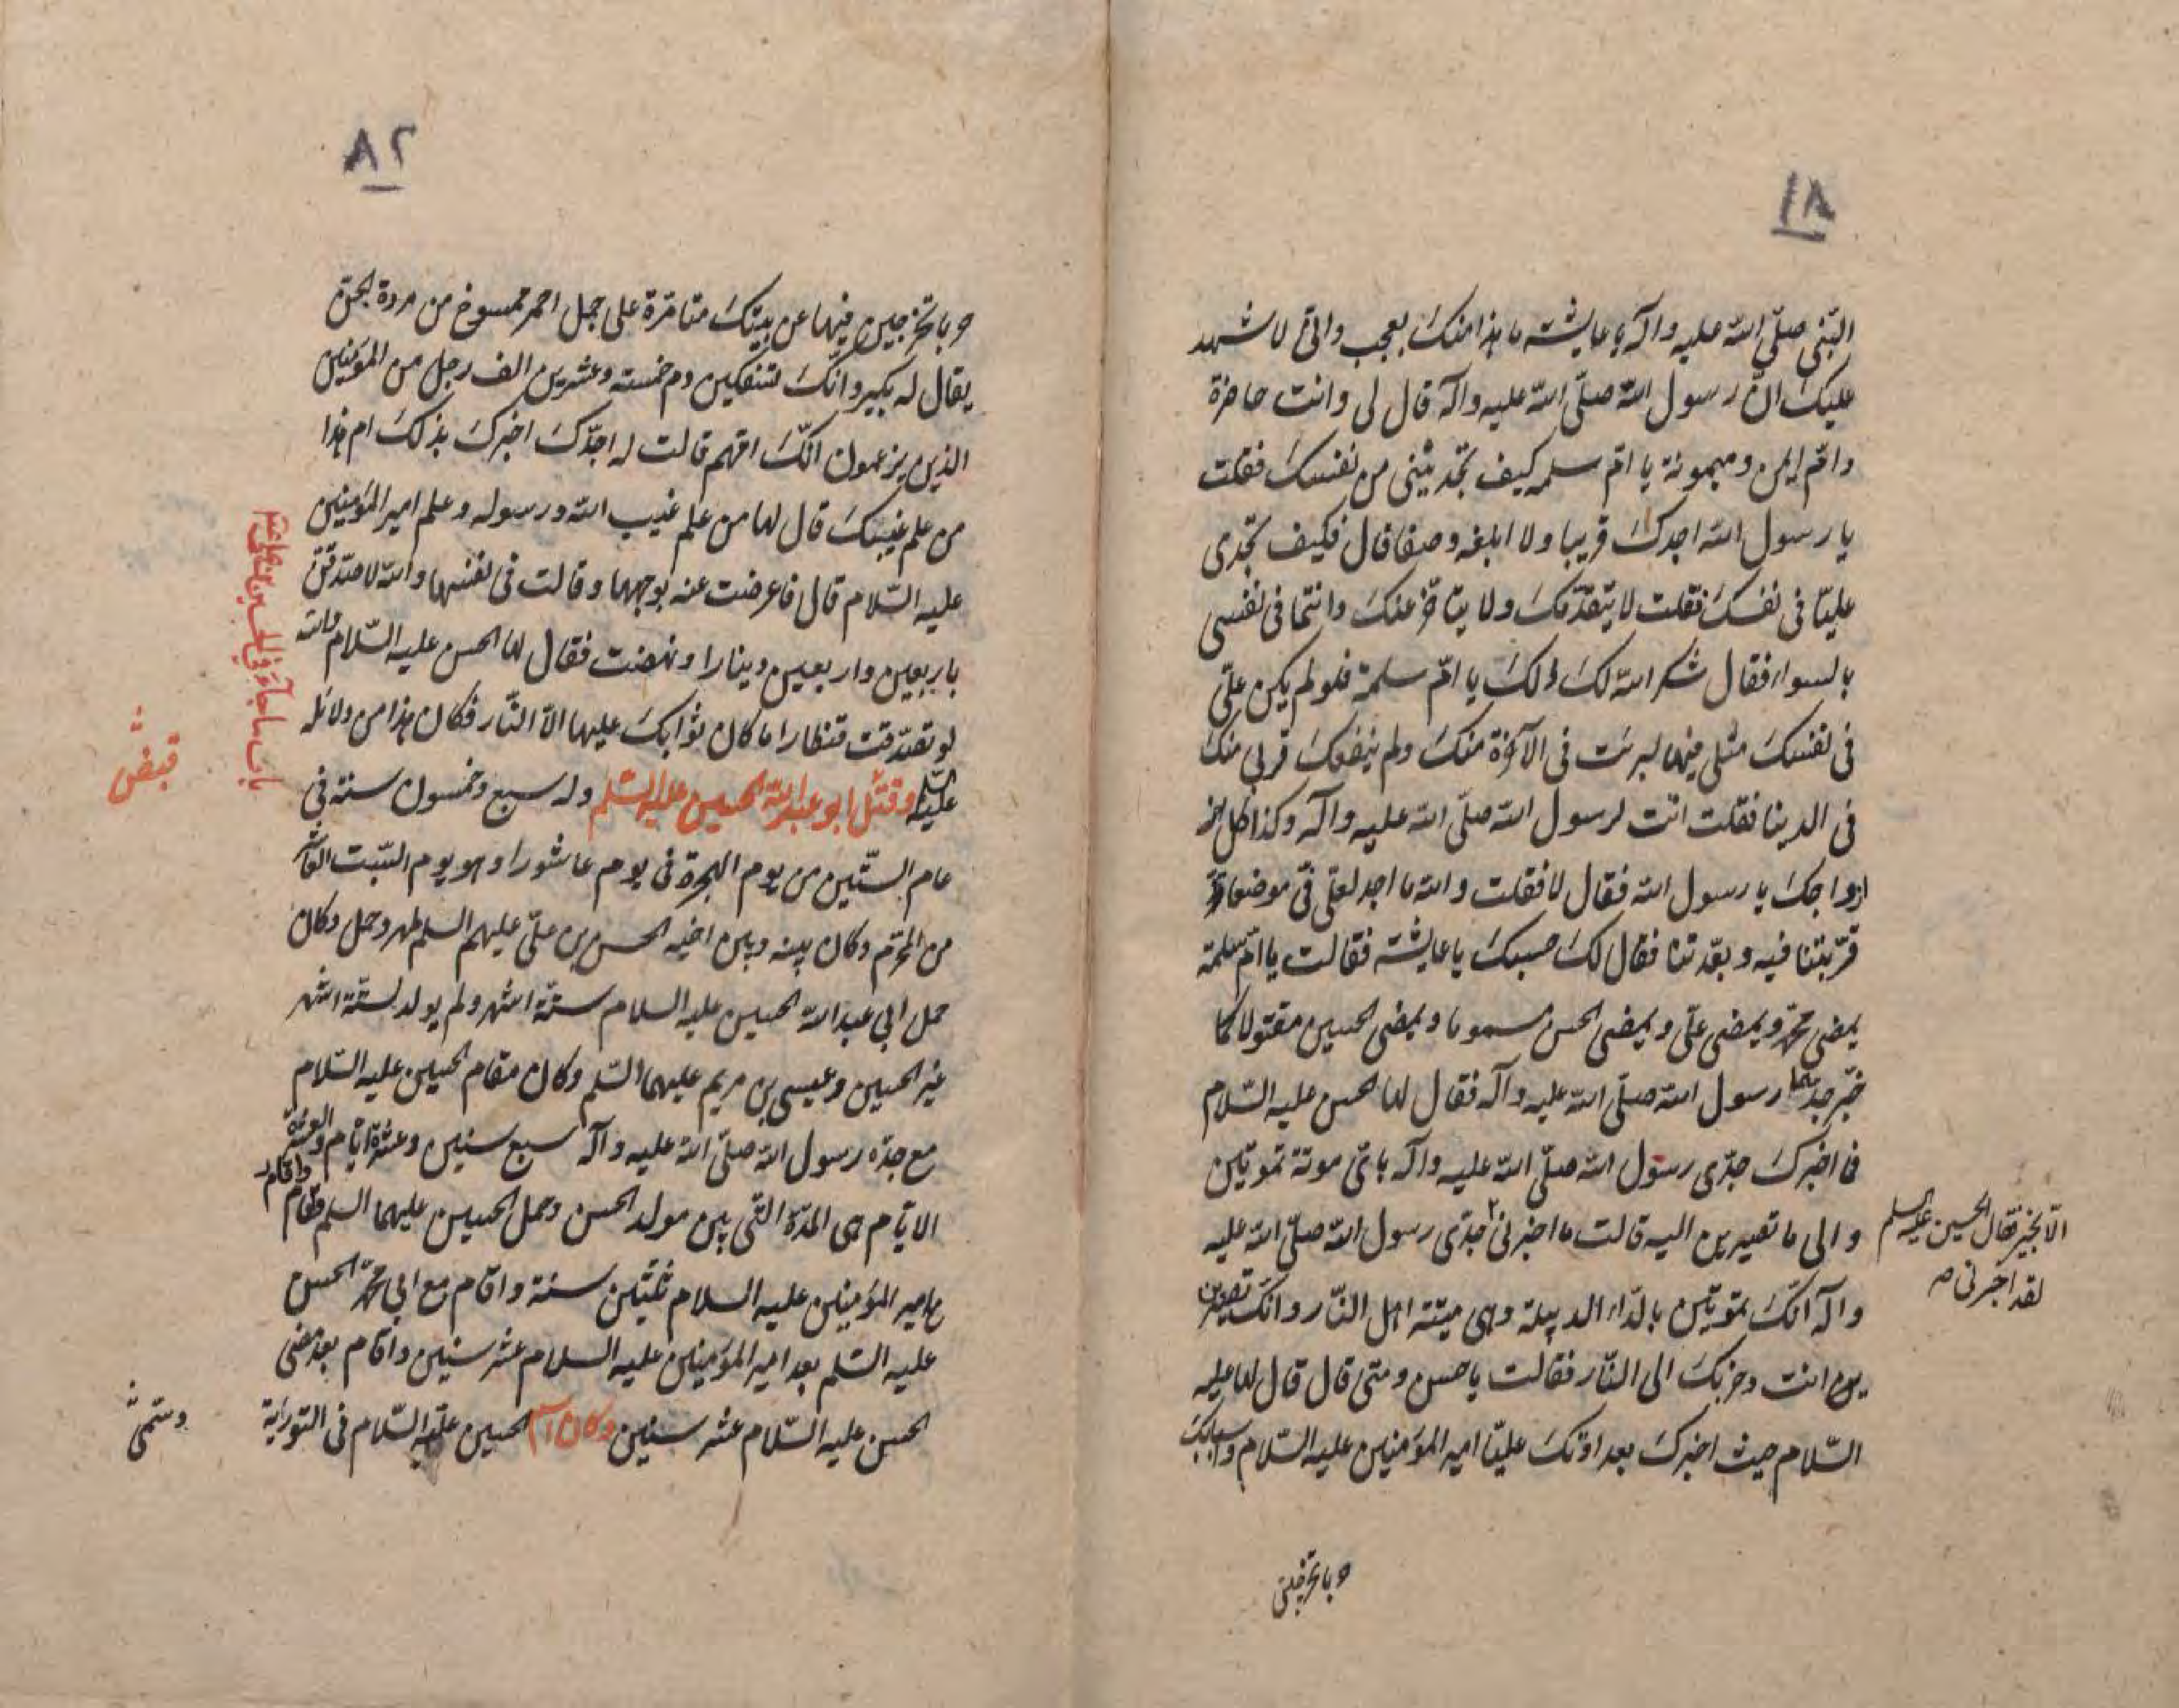 ٨١
النبی صلّی اللّه علیه وآله یا عایشه ما هذا منک بعجب وانّی لاشهد
علیک انّ رسول اللّه صلّی اللّه علیه وآله قال لی وانت حاضرة
وامّ ایمن ومیمونة یا امّ سلمه کیف تجدیننی من نفسک فقلت
یا رسول اللّه اجدک قریبا ولا ابلغه وصفا قال فکیف تجدی
علیّا فی نفسک فقلت لا یتقدّمک ولا یتاخّر عنک وانتما فی نفسی
بالسواء فقال شکر اللّه لک ذلک یا امّ سلمة فلو لم یکن علیّ
فی نفسک مثلی فیها لبرئت فی الآخرة منک ولم ینفعک قربی منک
فی الدینا فقلت انت لرسول اللّه صلّی اللّه علیه وآله وکذا کل
ازواجک یا رسول اللّه فقال لا فقلت واللّه ما اجد لعلیّ فیّ موضعا
قرّبتنا فیه وبعّدتنا فقال لک حسبک یا عایشة فقالت یا امّ سلمة
یمضی محمّد ویمضی علیّ ویمضی الحسن مسموما ویمضی الحسین مقتولا کما
خبّر جدّهما رسول اللّه صلّی اللّه علیه وآله فقال لها الحسن علیه السّلام
فما اخبرک جدّی رسول اللّه صلّی اللّه علیه وآله بایّ موتة تموتین
والی ما تصیرین الیه قالت ما اخبرنی جدّی رسول اللّه صلّی اللّه علیه
الّا بخیر فقال الحسین علیه السلم
لقد اخبرنی
وآله انّک تموتین بالدّاء الدبیلة وهی میتة اهل النّار وانّک تصیرین
یوم انت وحزبک الی النّار فقالت یا حسن ومتی قال قال لها علیه
السّلام حیث اخبرک بعداوتک علیّا امیر المؤمنین علیه السّلام
وباتخرجین
٨٢
وباتخرجین فیها عن بیتک متامّرة علی جمل احمر ممسوخ من مردة الجنّ
یقال له بکیر وانّک لتسفکین دم خمسة وعشرین الف رجل من المؤمنین
الذین یزعمون انّک امّهم قالت له اجدّک اخبرک بذلک ام هذا
من علم غیبک قال لها من علم غیب اللّه ورسوله وعلم امیر المؤمنین
علیه السّلام قال فاعرضت عنه بوجهها وقالت فی نفسها واللّه لاصّدقنّ
باربعین واربعین دینارا ونهضت فقال لها الحسن علیه السّلام واللّه
لو تصدّقت قنطارا ما کان ثوابک علیها الّا النّار فکان هذا من دلائله
علیه السلم وقتل ابو عبد اللّه الحسین علیه السّلم وله سبع وخمسون سنة فی
قبض
عام الستّین من یوم الهجرة فی یوم عاشورا وهو یوم السّبت العاشر
من المحرّم وکان بینه وبین اخیه الحسن بن علیّ علیهم السلم طهر وحمل وکان
حمل ابی عبد اللّه الحسین علیه السلام ستّة اشهر ولم یولد لستّة اشهر
غیر الحسین وعیسی بن مریم علیهما السّلم وکان مقام الحسین علیه السّلام
مع جدّه رسول اللّه صلّی اللّه علیه وآله سبع سنین وعشرة ایّام والعشرة
الایّام هی المدّة الّتی بین مولد الحسن وحمل الحسین علیهما السلم واقام
مع امیر المؤمنین علیه السلام ثلثین سنة واقام مع ابی محمّد الحسن
علیه السّلم بعد امیر المؤمنین علیه السلام عشر سنین واقام بعد مضی
الحسن علیه السّلام عشر سنین وکان اسم الحسین علیه السّلام فی التوریة
وسمّی